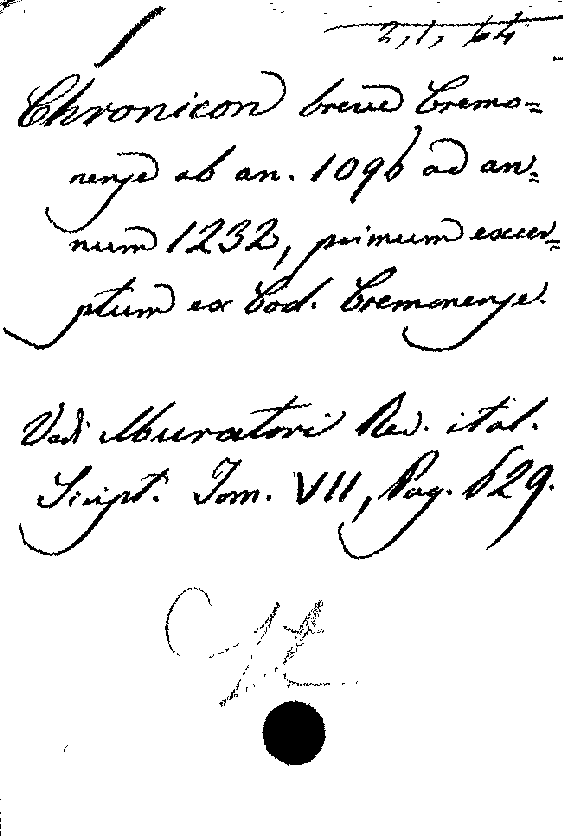 2, 1, 64
Chronicon breve Cremo=
nense ab an. 1096 ad an=
num 1232, primum excer=
ptum ex Cod. Cremonense.
Vedi Muratori Rer. ital.
Script. Tom. VII, Pag. 629.